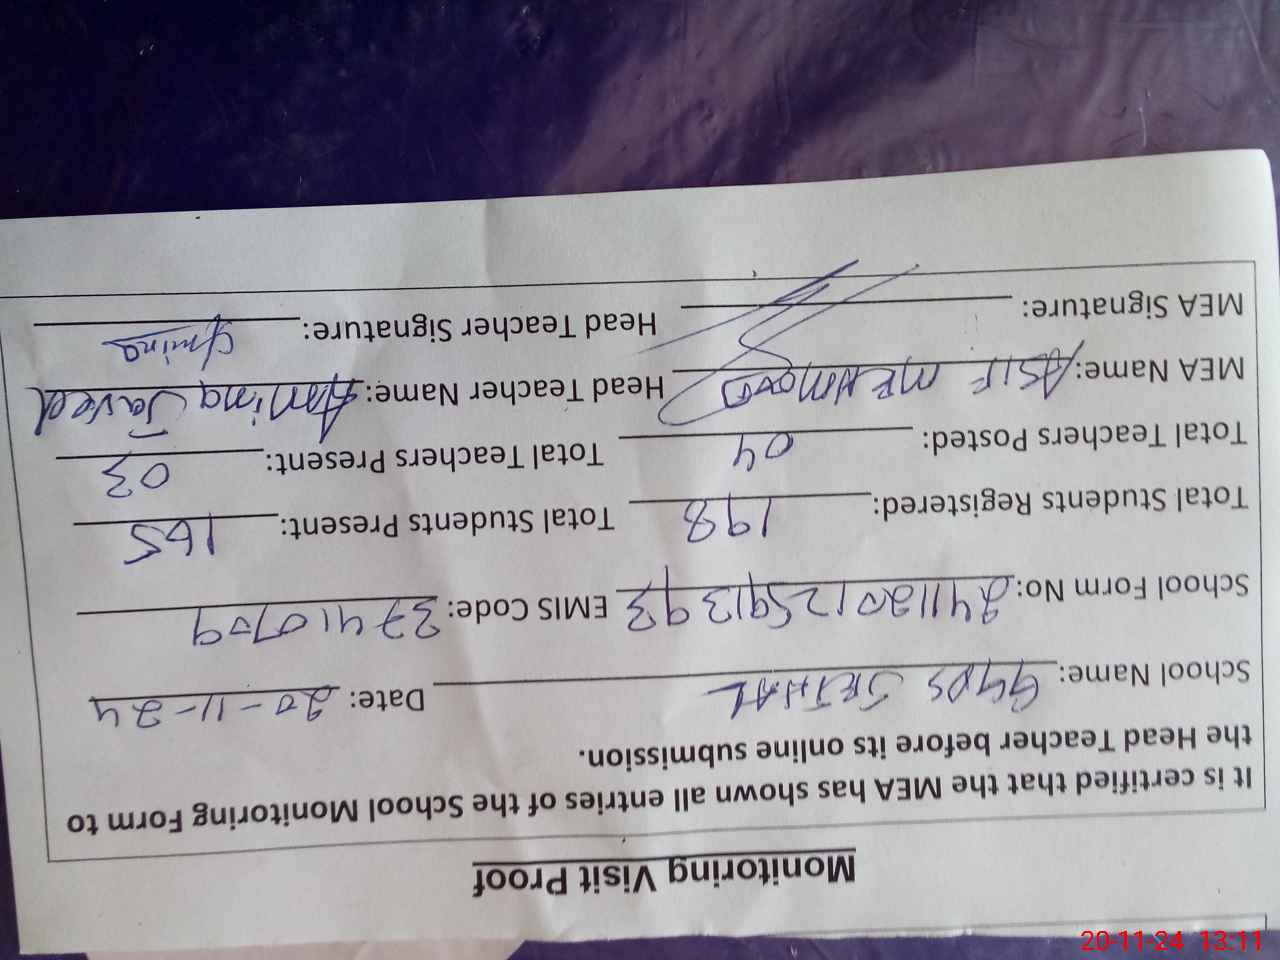 Monitoring Visit Proof
It is certified that the MEA has shown all entries of the School Monitoring Form to
the Head Teacher before its online submission.
School Name: GGPS JETHAL Date: 20-11-24
School Form No: 24112012591393 EMIS Code: 37410709
Total Students Registered: 198 Total Students Present: 165
Total Teachers Posted: 04 Total Teachers Present: 03
MEA Name: ASIF MEHMOOD Head Teacher Name: Aamina Javed
MEA Signature: Head Teacher Signature: Amina
20-11-24 13:11